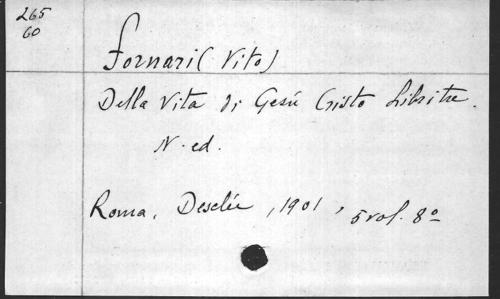 265
60
Fornari (Vito)
Della Vita di Gesù Cristo Libri tre.
N. ed.
Roma, Desclée, 1901, 5 vol. 8º